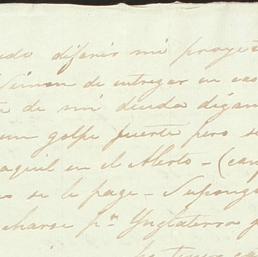 diferir mi proyec
de entregar en cas
de mi deuda digam
un golpe fuerte pero s
aquil en el Alerto - (cam
o se le page - Supongo
charse pa. Ynglaterra y